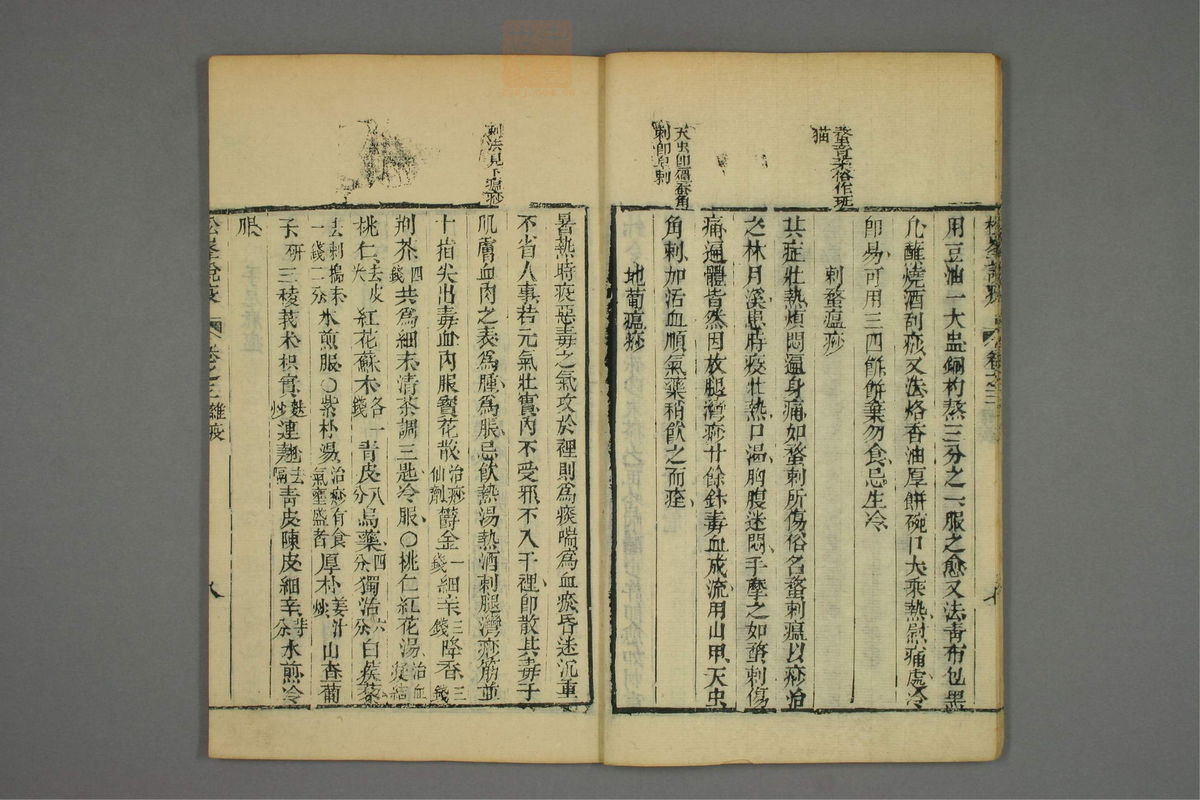 用豆油一大盅銅杓熬三分之一服之愈又法青布包墨
允蘸燒酒刮痧又法烙香油厚餅碗口大乘熱慰痛處冷
即易可用三四餅餅棄勿食忌生冷
刺螫瘟痧
其症壯熱煩悶遍身痛如螫刺所傷俗名螫刺瘟以痧治
之林月溪患時疫壯熱口渴胸腹迷悶手摩之如螫刺傷
痛遍體皆然因放腿灣痧廿餘針毒血成流用山甲天虫
角刺加活血順氣藥稍飲之而痊
地葡瘟痧
螫音柔俗作班
猫
天虫即殭蠶角
刺即皂刺
暑熱時疫惡毒之氣攻於裡則為痰喘為血瘀昏迷沉重
不省人事若元氣壯實內不受邪不入于裡即散其毒于
肌膚血肉之表為腫為脹忌飲熱湯熱酒刺腿灣痧筋並
十指尖出毒血內服寶花散治痧仙劑鬱金一錢細辛三錢降香三錢
荊芥四錢共為細末清茶調三匙冷服〇桃仁紅花湯治血凝結
桃仁去皮尖紅花蘇木各一錢青皮八分烏藥四分獨活六分白蒺藜
去刺搗末一錢二分水煎服〇紫朴湯治痧有食氣壅盛者厚朴姜汁炒山查蔔
子研三稜莪朮枳實麩炒連翹去隔青皮陳皮細辛等分水煎冷
服
刺法見下瘟痧
松峯說疫
卷之三
雜疫
八